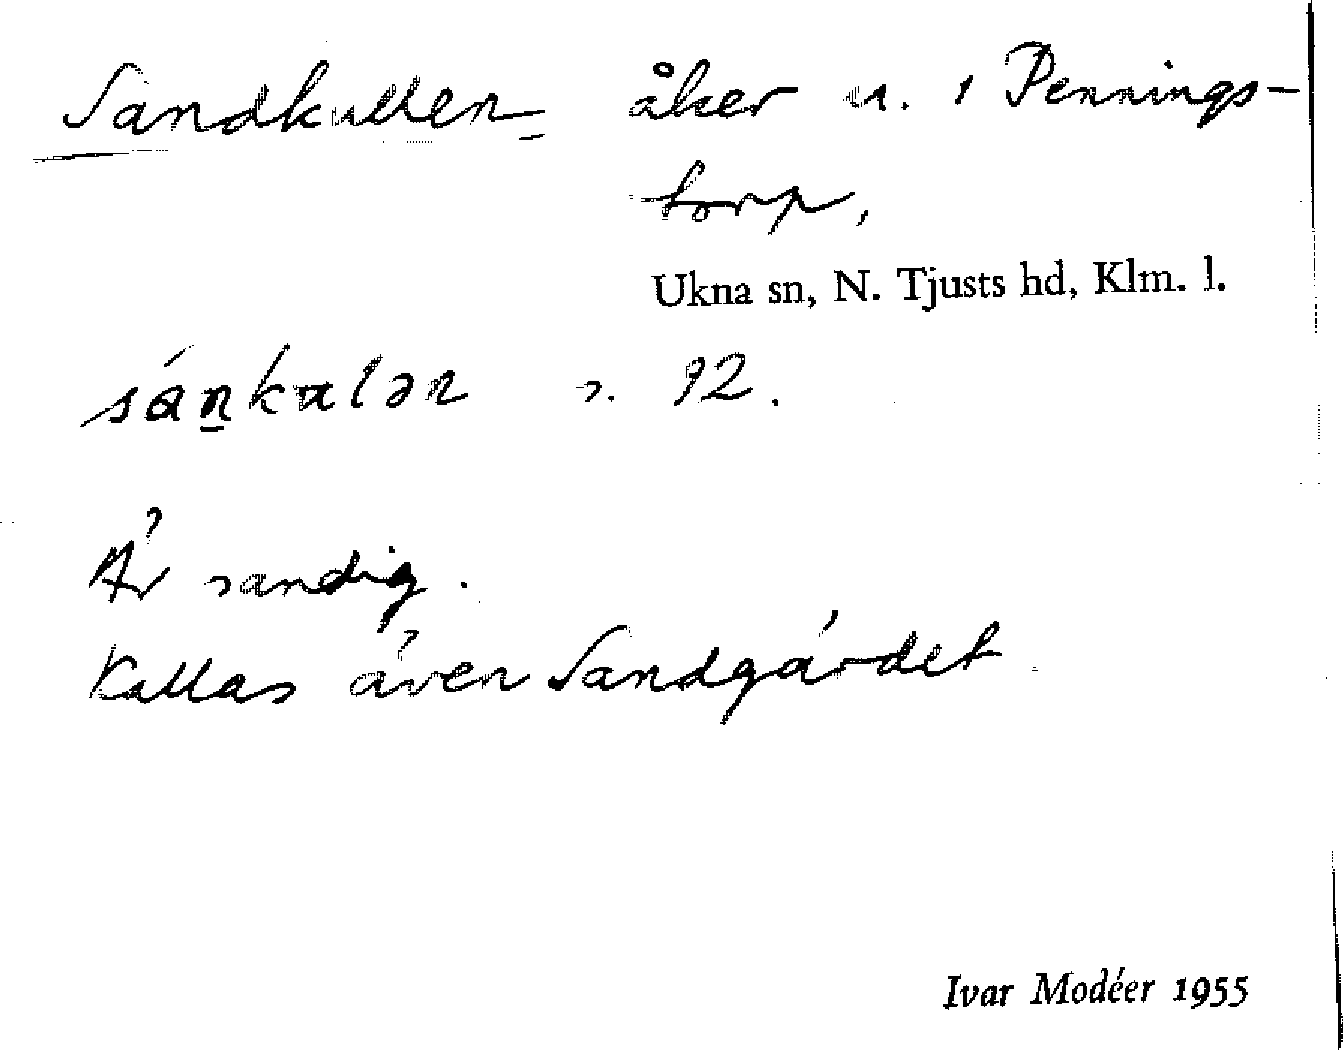 Sandkullen åker u. 1 Pennings-
torp,
Ukna sn, N. Tjusts hd, Klm. l.
sáṉkalən s. 92.
Är sandig.
Kallas även Sandgärdet
Ivar Modéer 1955